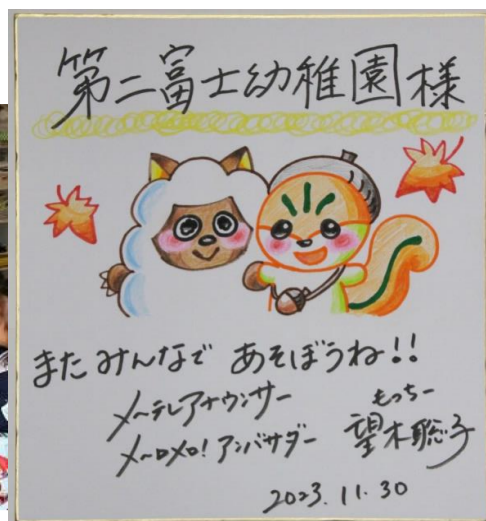 第二富士幼稚園様
またみんなで あそぼうね!!
メ〜テレアナウンサー
もっちー
メ〜ロメロ!アンバサダー 望木聡子
2023.11.30